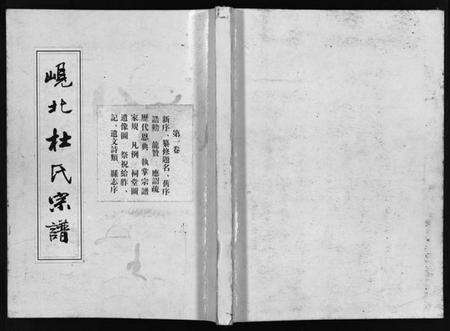 峴北杜氏宗譜
第一卷
新序、纂修題名、舊序
誥勅 龍贊 應詔疏
歷代恩典 執掌宗譜
家規 凡例 祠堂圖
遺像圖 祭祝給胙、
記、遺文詩類 縣志序